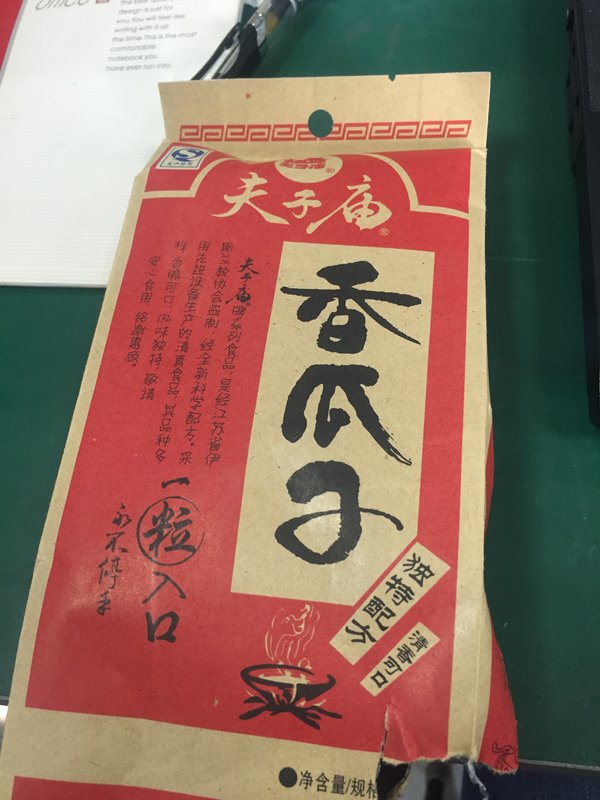 The best
design is just for
you. You will feel like
writing with it all
the time. This is the most
comfortable
notebook you
have ever run into.
夫子庙®
香瓜子
夫子庙牌系列食品,是经江苏省伊
斯兰教协会监制 经全新科学配方。采
用先进设备生产的清真食品,其品种多
样 香脆可口,风味独特,敬请
安心食用 铭谢惠顾。
一粒入口
永不停手
独特配方
清香可口
●净含量/规格